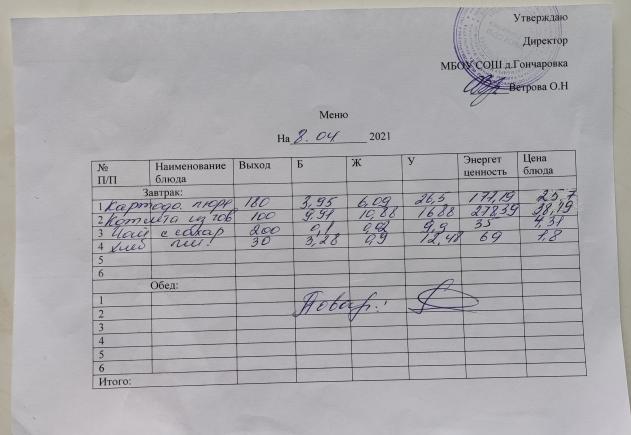 Утверждаю
Директор
МБОУ СОШ д.Гончаровка
Ветрова О.Н
Меню
На 8.04 2021
№ П/П Наименование блюда Выход Б Ж У Энергет ценность Цена блюда
Завтрак:
1 Картоф. пюре 180 3,95 6,09 26,5 177,19
2 Котлета из гов 100 9,91 10,88 1688 278,39 28,19
3 Чай с сахар 200 0,1 0,02 9,9 35
4 хлеб пш! 30 3,28 0,9 12,48 69 1,8
5
6
Обед:
1 Повар:
2
3
4
5
6
Итого: